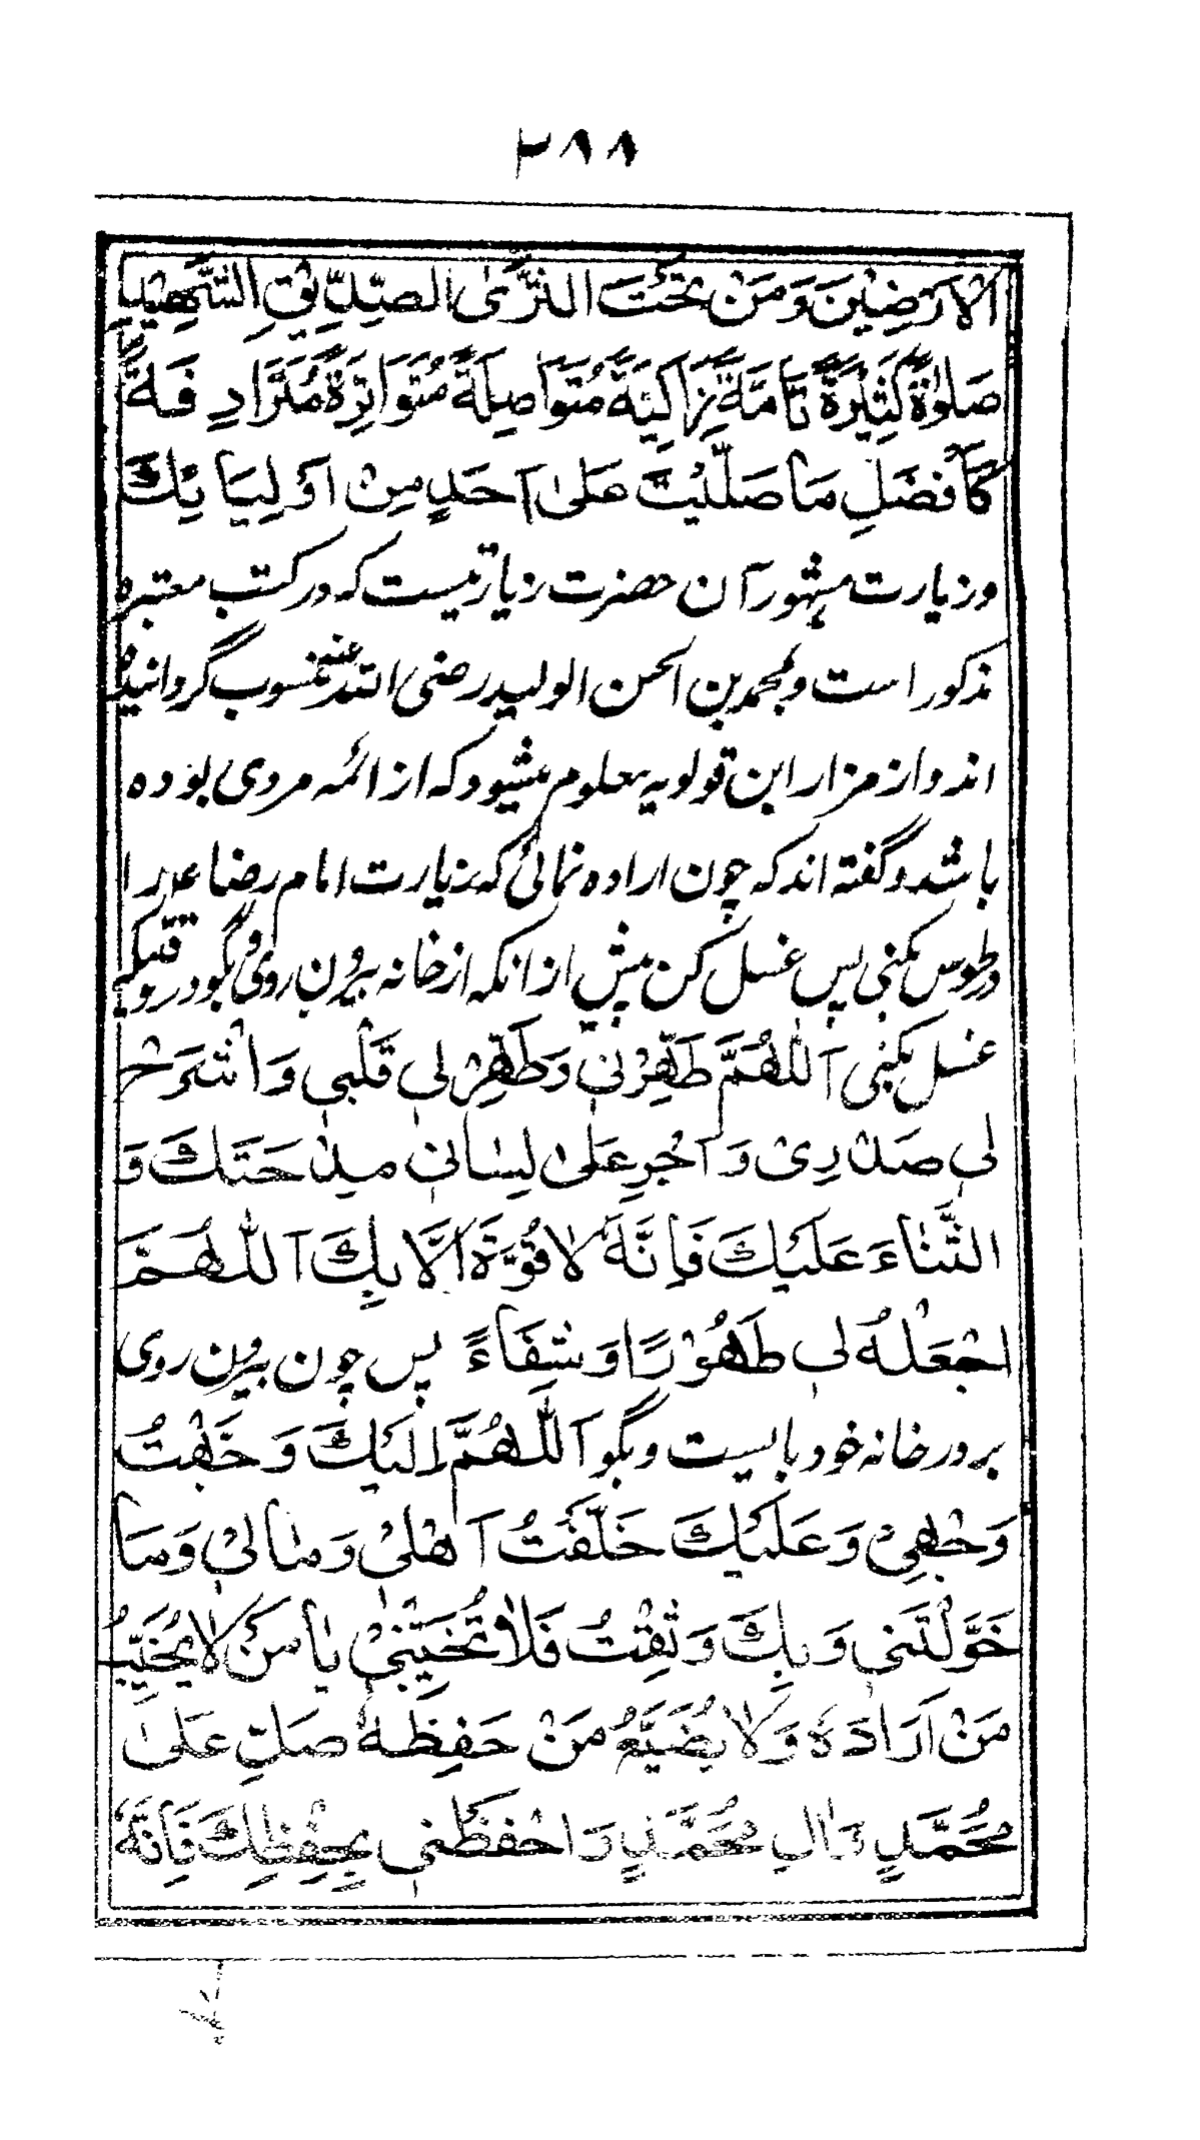 ۲۸۸
الْاَرَضِيْنَ وَمَنْ تَحْتَ الثَّرٰى الصِّدِّيْقِ الشَّهِيْدِ
صَلٰوةً كَثِيْرَةً تَامَّةً زَاكِيَةً مُتَوَاصِلَةً مُتَوَاتِرَةً مُتَرَادِفَةً
كَاَفْضَلِ مَا صَلَّيْتَ عَلٰى اَحَدٍ مِنْ اَوْلِيَائِكَ
وزیارت مشهور آن حضرت زیارتیست که در کتب معتبره
مذکور است و بمحمد بن الحسن الولید رضی الله عنه منسوب گردانیده
اند و از مزار ابن قولویه معلوم میشود که از ائمه مروی بوده
باشد و گفته اند که چون اراده نمائی که زیارت امام رضا ع را
در طوس بکنی پس غسل کن پیش از انکه از خانه بیرون روی و بگو در وقتیکه
غسل بکنی اَللّٰهُمَّ طَهِّرْنِي وَطَهِّرْ لِي قَلْبِي وَاشْرَحْ
لِي صَدْرِىْ وَاَجْرِ عَلٰى لِسَانِي مِدْحَتَكَ وَ
الثَّنَاءَ عَلَيْكَ فَاِنَّهُ لَا قُوَّةَ اِلَّا بِكَ اَللّٰهُمَّ
اجْعَلْهُ لِي طَهُوْرًا وَشِفَاءً پس چون بیرون روی
بر در خانه خود بایست و بگو اَللّٰهُمَّ اِلَيْكَ وَجَّهْتُ
وَجْهِيْ وَعَلَيْكَ خَلَّفْتُ اَهْلِيْ وَمَالِيْ وَمَا
خَوَّلْتَنِي وَبِكَ وَثِقْتُ فَلَا تُخَيِّبْنِيْ يَا مَنْ لَا يُخَيِّبُ
مَنْ اَرَادَهُ وَلَا يُضَيِّعُ مَنْ حَفِظَهُ صَلِّ عَلٰى
مُحَمَّدٍ وَاٰلِ مُحَمَّدٍ وَاحْفَظْنِي بِحِفْظِكَ فَاِنَّهُ